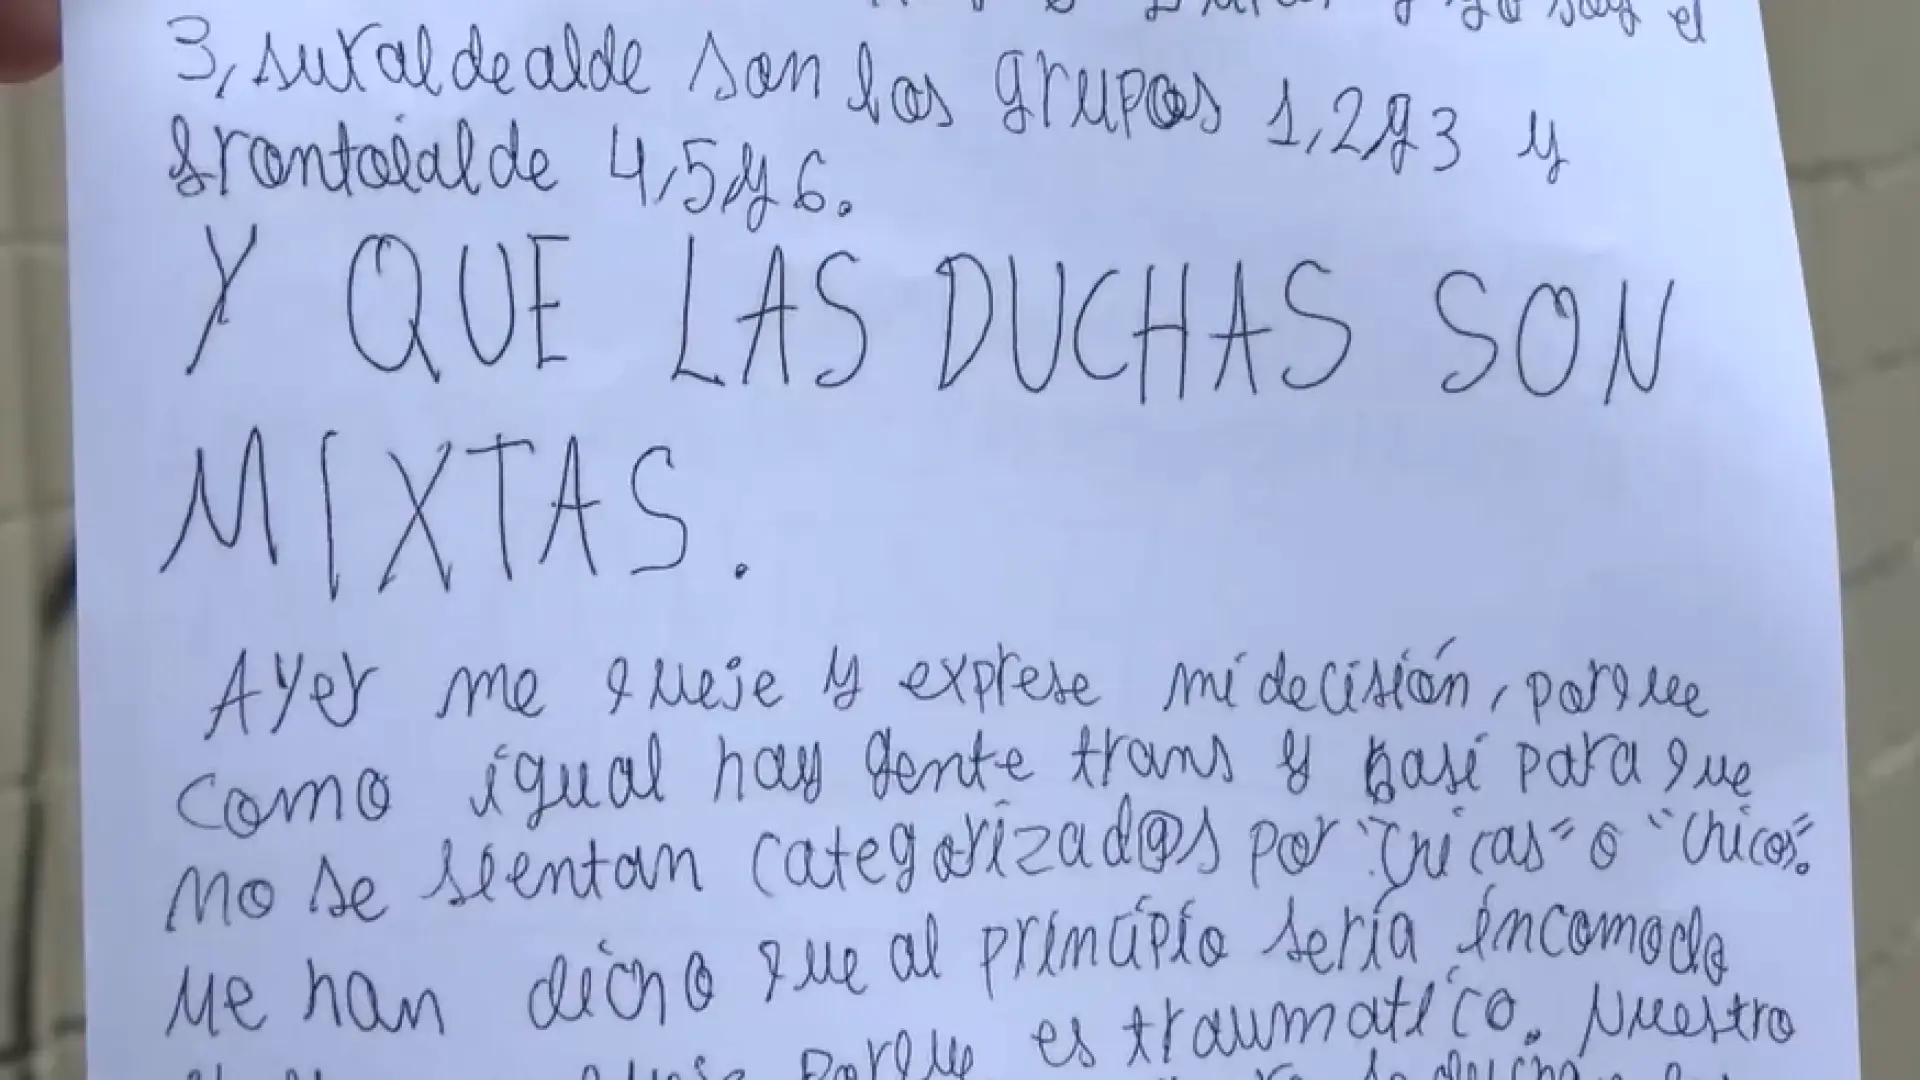 y yo soy el
3, sutaldealde son los grupos 1,2y3 y
frontoialde 4,5y6.
Y QUE LAS DUCHAS SON
MIXTAS.
Ayer me queje y exprese mi decisión, porque
como igual hay gente trans y basi para que
no se sientan categorizad@s por "chicas" o "chicos".
Me han dicho que al principio sería incomodo
porque es traumatico. Nuestro